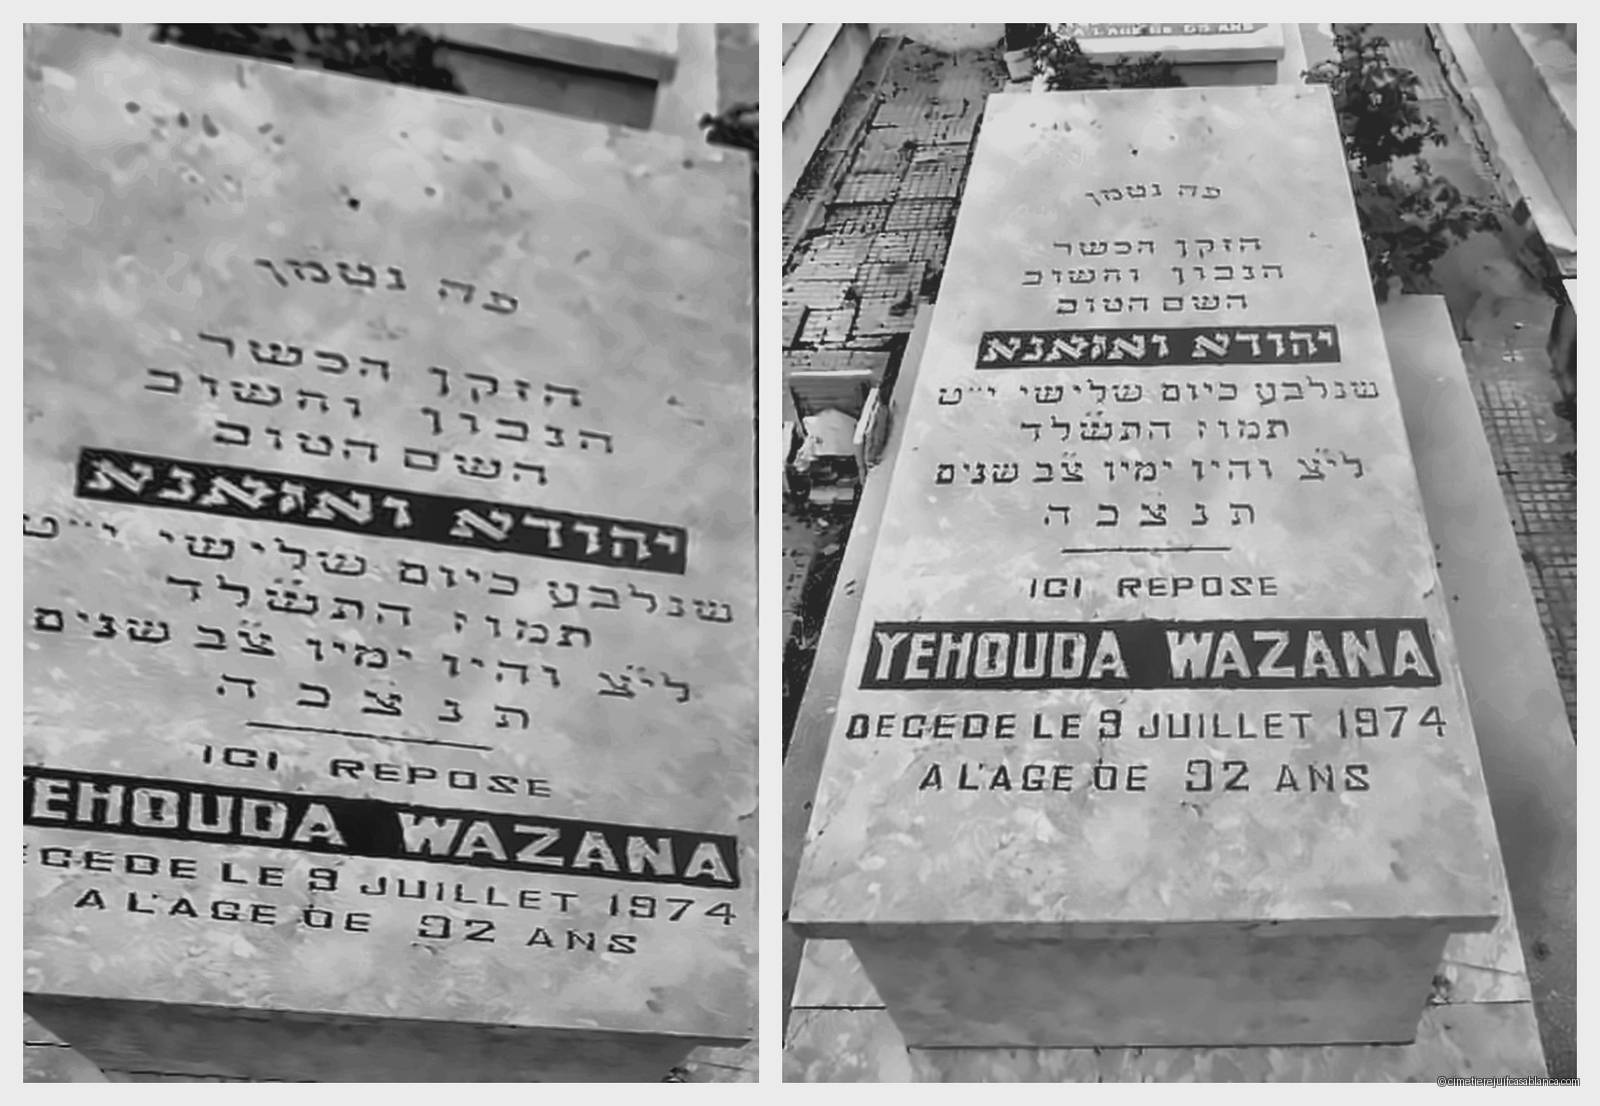 פה נטמן
הזקן הכשר
הנבון והשוב
השם הטוב
יהודא ואזאנא
שנלבע ביום שלישי י״ט
תמוז התש״לד
ליצ והיו ימיו צ״ב שנים
ת נ צ ב ה
ICI REPOSE
YEHOUDA WAZANA
DECEDE LE 9 JUILLET 1974
A L'AGE DE 92 ANS
פה נטמן
הזקן הכשר
הנבון והשוב
השם הטוב
יהודא ואזאנא
שנלבע ביום שלישי י״ט
תמוז התש״לד
ליצ והיו ימיו צ״ב שנים
ת נ צ ב ה
ICI REPOSE
YEHOUDA WAZANA
DECEDE LE 9 JUILLET 1974
A L'AGE DE 92 ANS
©cimetierejuifcasablanca.com